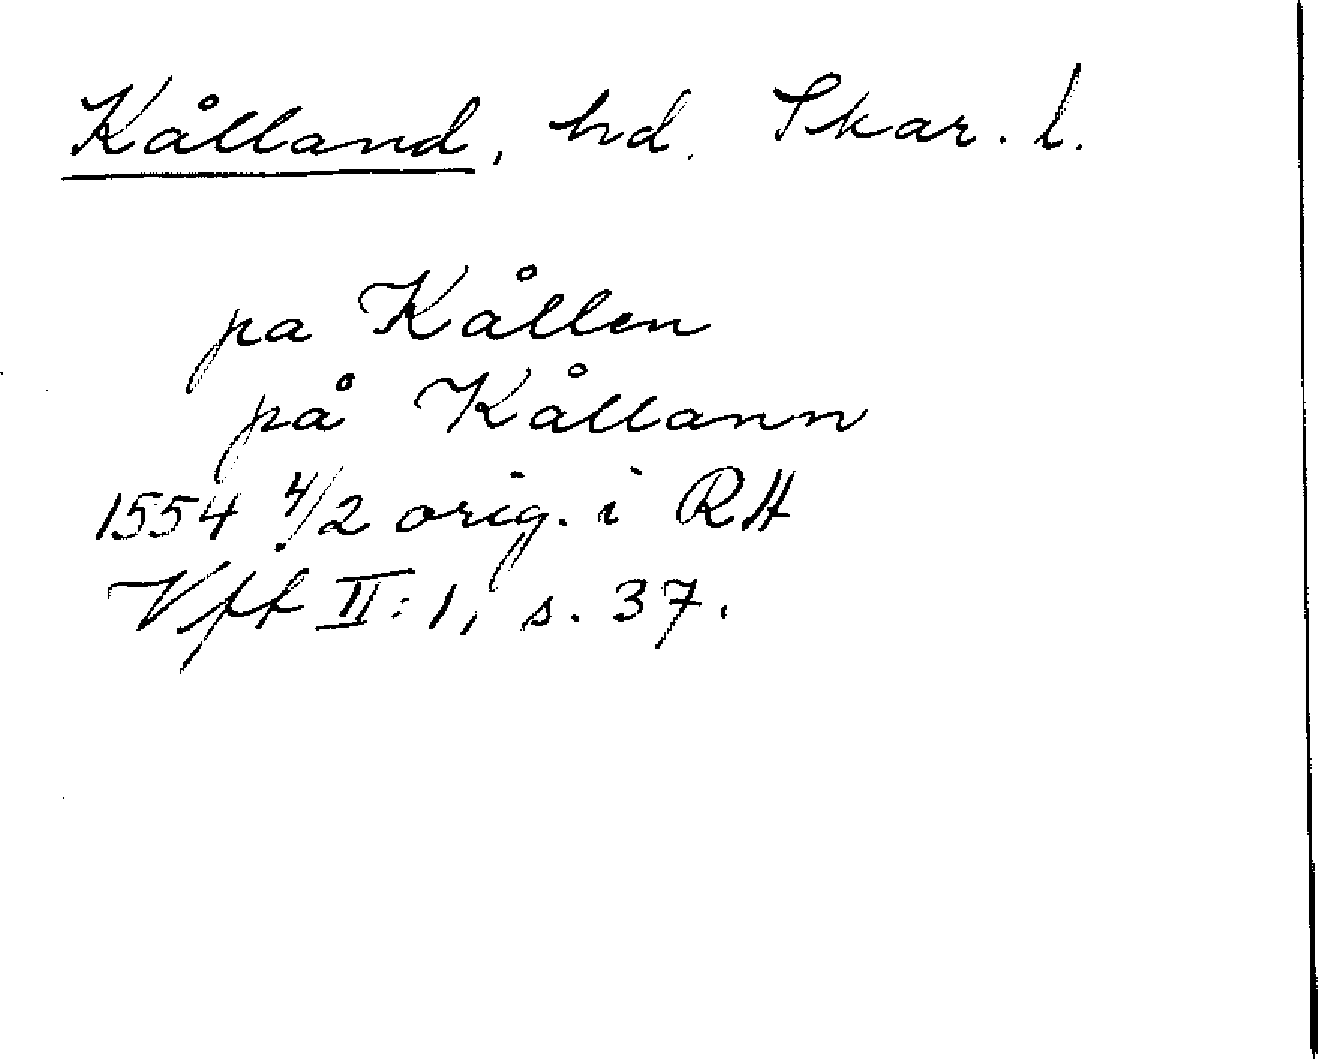 Kålland, hd. Skar. l.
pa Kållen
på Kållann
1554 4/2 orig. i RH
Vff II:1, s. 37.